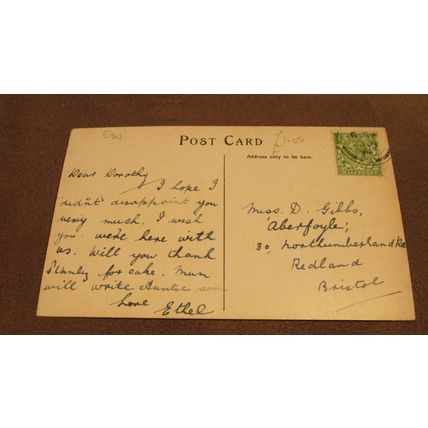 ESJ
£1.00
POST CARD
Address only to be here.
Dear Dorothy
I hope I
didn't disappoint you
very much. I wish
you were here with
us. Will you thank
Stanley for cake. Mum
will write Auntie soon
Love
Ethel
Miss. D. Gibbs,
'Aberfoyle';
30, Northumberland Rd
Redland
Bristol